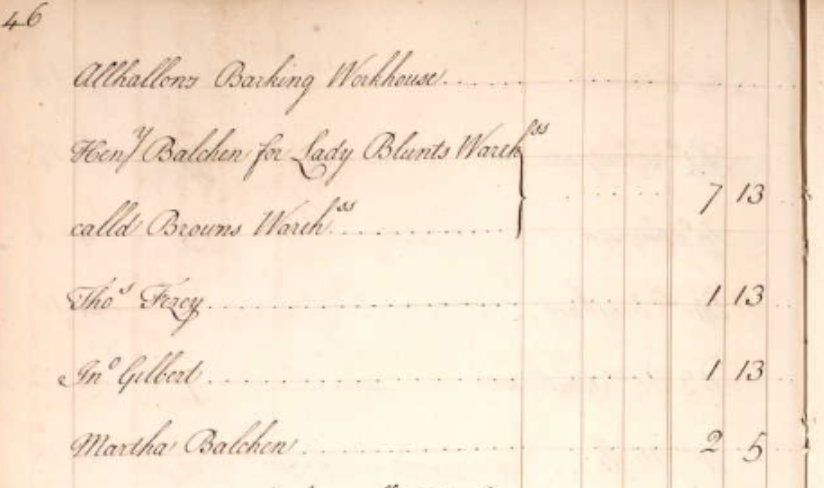 46
Allhallons Barking Workhouse
Henʸ Balchen for Lady Blunts Warehˢˢ
calld Browns Warehˢˢ 7 13
Thoˢ Frey 1 13
Jnº Gilbert 1 13
Martha Balchen 2 5